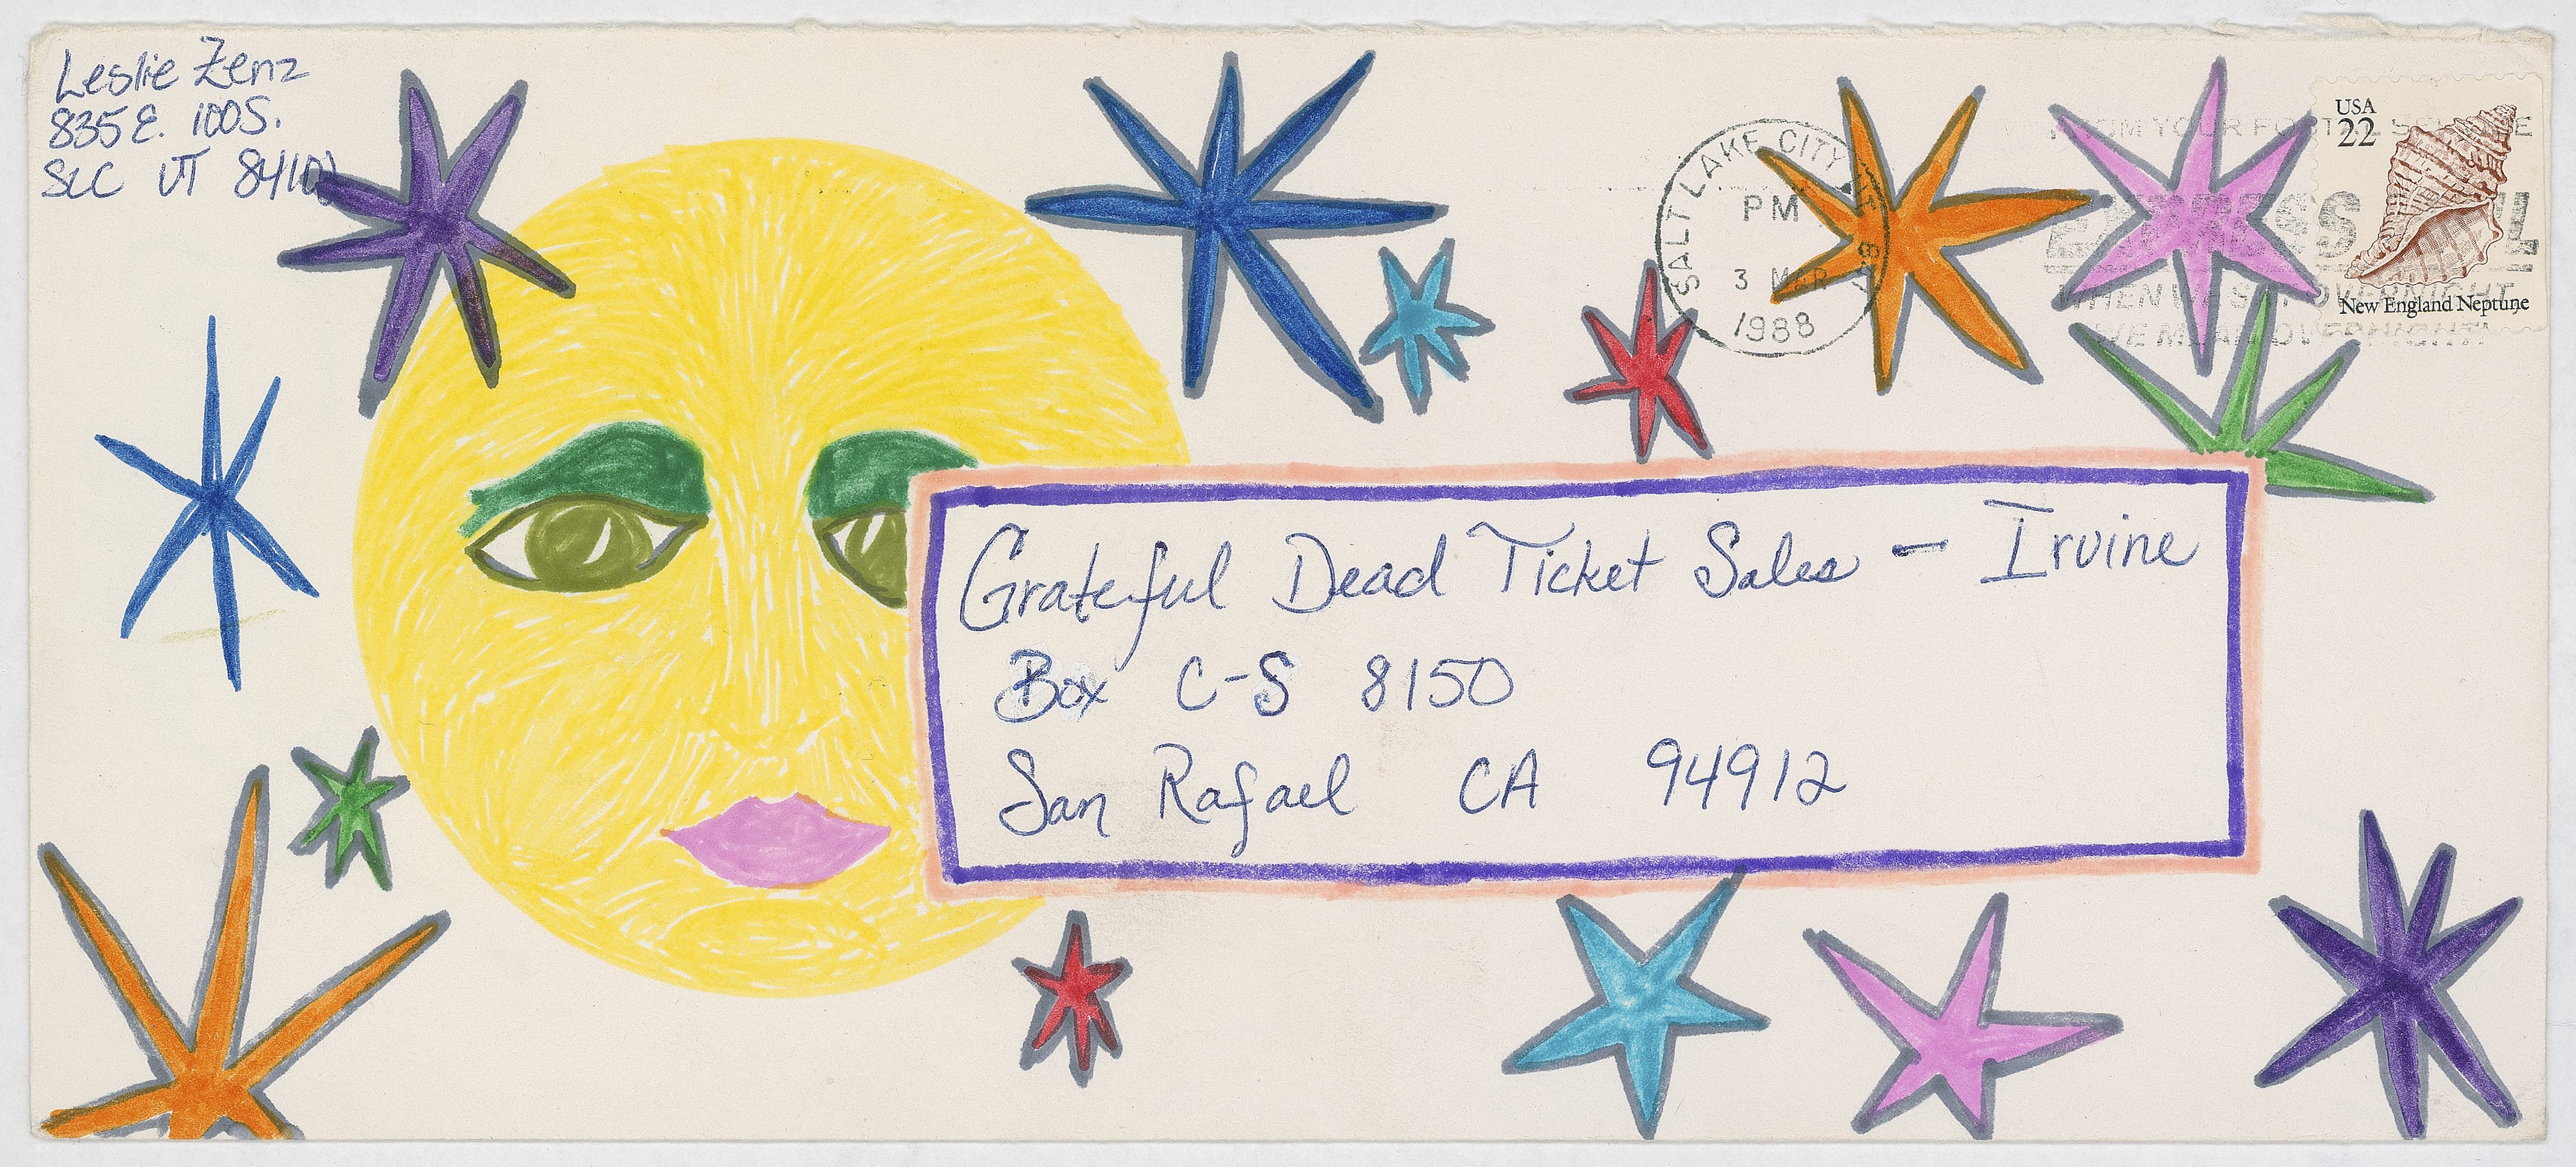 Leslie Zenz
835 E. 100 S.
SLC UT 84102
SALT LAKE CITY, UT
PM
3 MAR
1988
841
FROM YOUR POSTAL SERVICE
EXPRESS MAIL
WHEN WE SAY OVERNIGHT
WE MEAN OVERNIGHT!
USA
22
New England Neptune
Grateful Dead Ticket Sales – Irvine
Box C-S 8150
San Rafael CA 94912